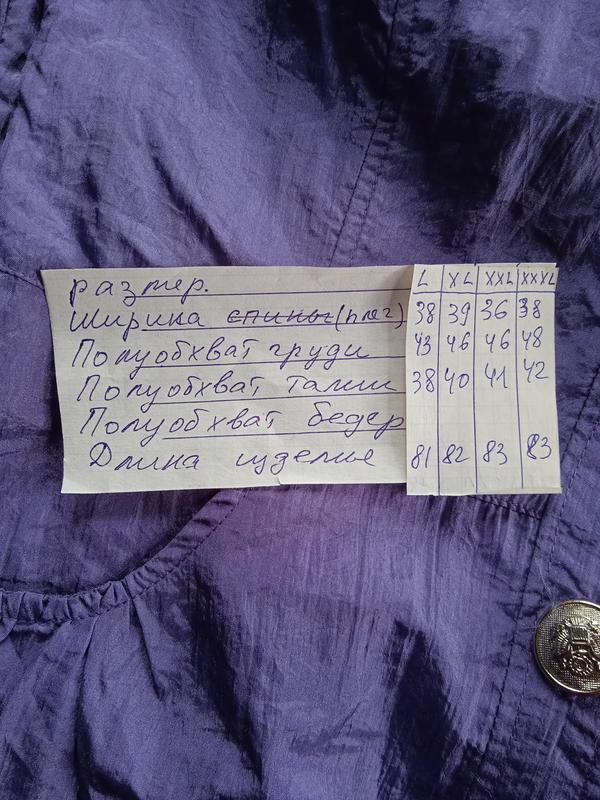 размер. L XL XXL XXXL
Ширина спины (плеч) 38 39 36 38
Полуобхват груди 43 46 46 48
Полуобхват талии 38 40 41 42
Полуобхват бедер
Длина изделье 81 82 83 83